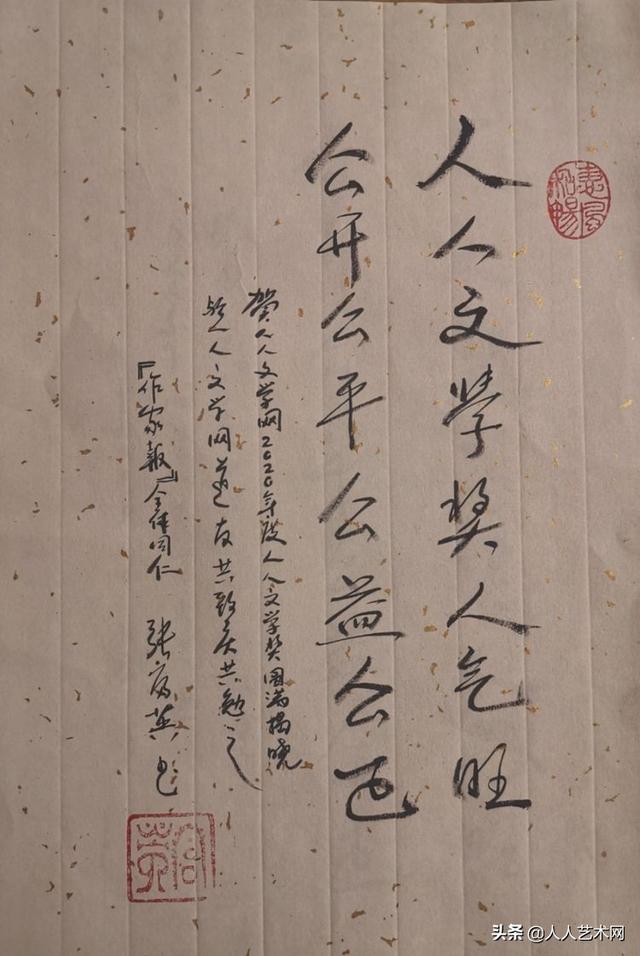 惠風和暢
人人文学奖人气旺
公开公平公益公正
贺人人文学网2020年度人人文学奖圆满揭晓
与人人文学网友共致共勉之
『作家報』全体同仁 张富英书
富英
头条@人人艺术网